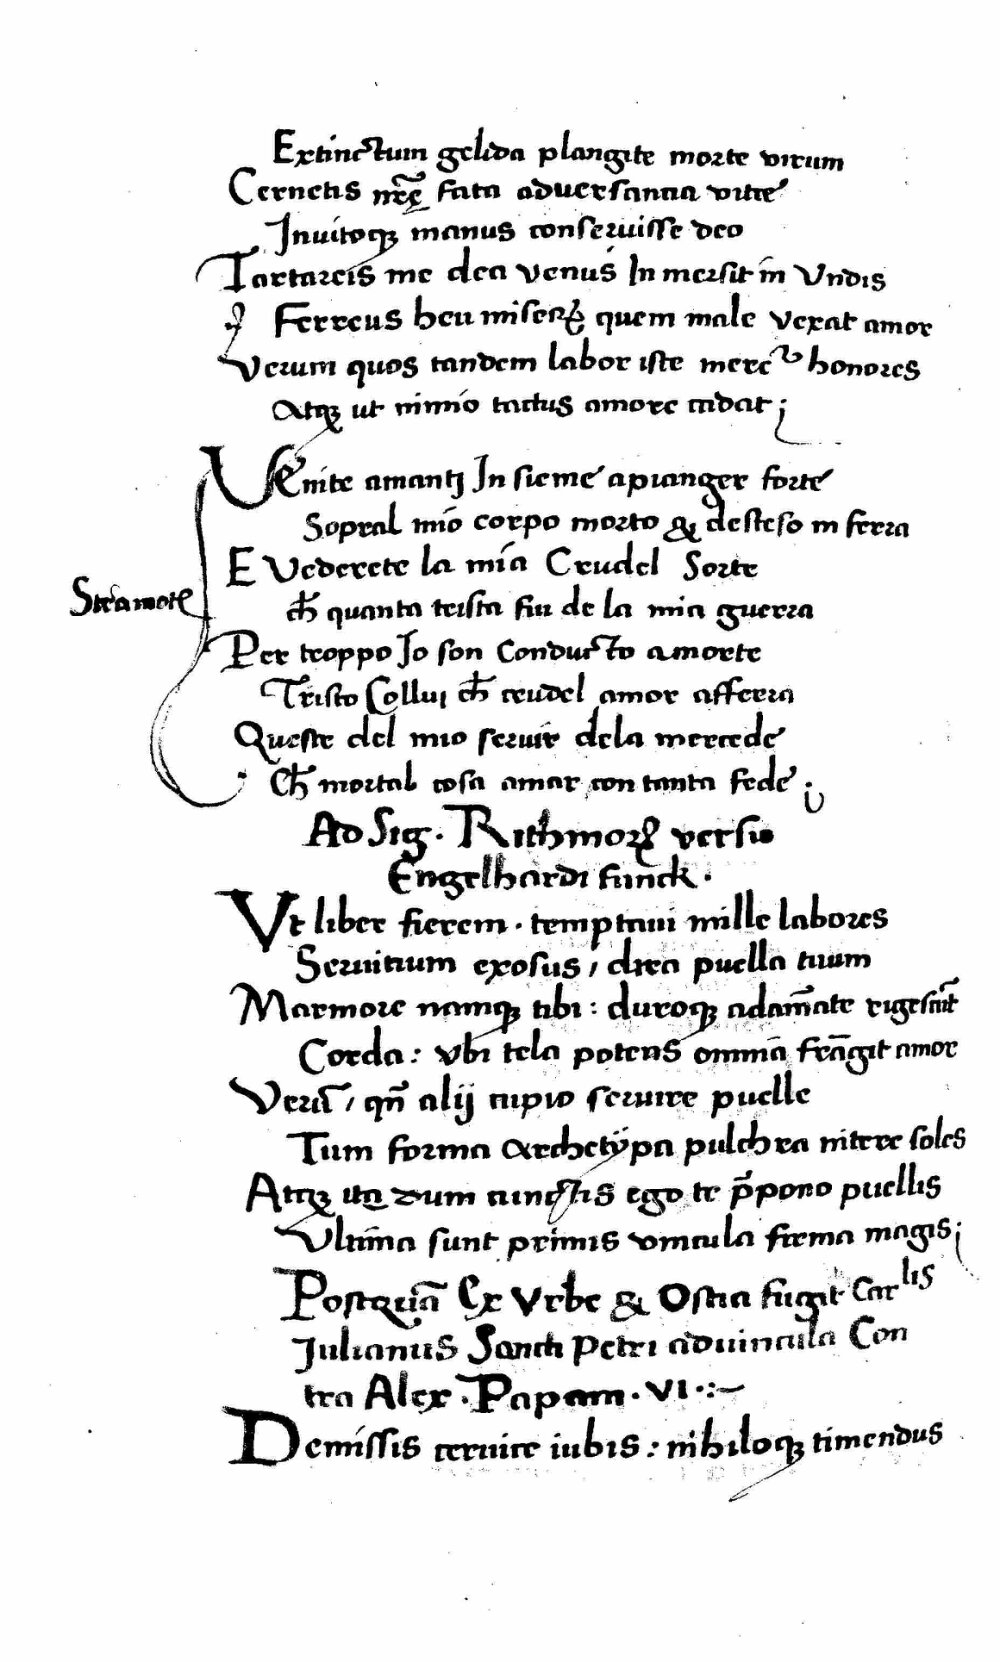 Extinctum gelida plangite morte virum
Cernetis nr̃ę fata aduersantia vite
Inuitoqꝫ manus conseruisse deo
Tartareis me dea venus In mersit in Vndis
Ferreus heu miserꝝ quem male vexat amor
Verum quos tandem labor iste meret᷑ honores
Atqꝫ ut nimio tactus amore cadat;
Venite amantj In sieme apianger forte
Sopral mio corpo morto & desteso in terra
E Vederete la mia Crudel Sorte
Stramote
ch̄ quanta trista fiu de la mia guerra
Per troppo Io son Conducto amorte
Tristo Collui ch̄ crudel amor afferra
Queste del mio seruir dela mercede
Ch̄ mortal cosa amar con tanta fede;
Ad Sig. Rithmoꝝ versio
Engelhardi funck.
Vt liber fierem. temptaui mille labores
Seruitium exosus, dira puella tuum
Marmore namqꝫ tibi: duroqꝫ adamāte rigescūt
Corda: vbi tela potens omnia frāgit amor
Verū, qn̄ alij cupio seruire puelle
Tum forma archetÿpa pulchra nitere soles
Atqꝫ ita dum cunctis ego te p̄pono puellis
Ultima sunt primis vincula firma magis;
Postquā Ex Vrbe & Ostia fugit Carlis
Julianus Sancti Petri aduincula Con
tra Alex. Papam. VI.:~
Demissis ceruice iubis: nihiloqꝫ timendus